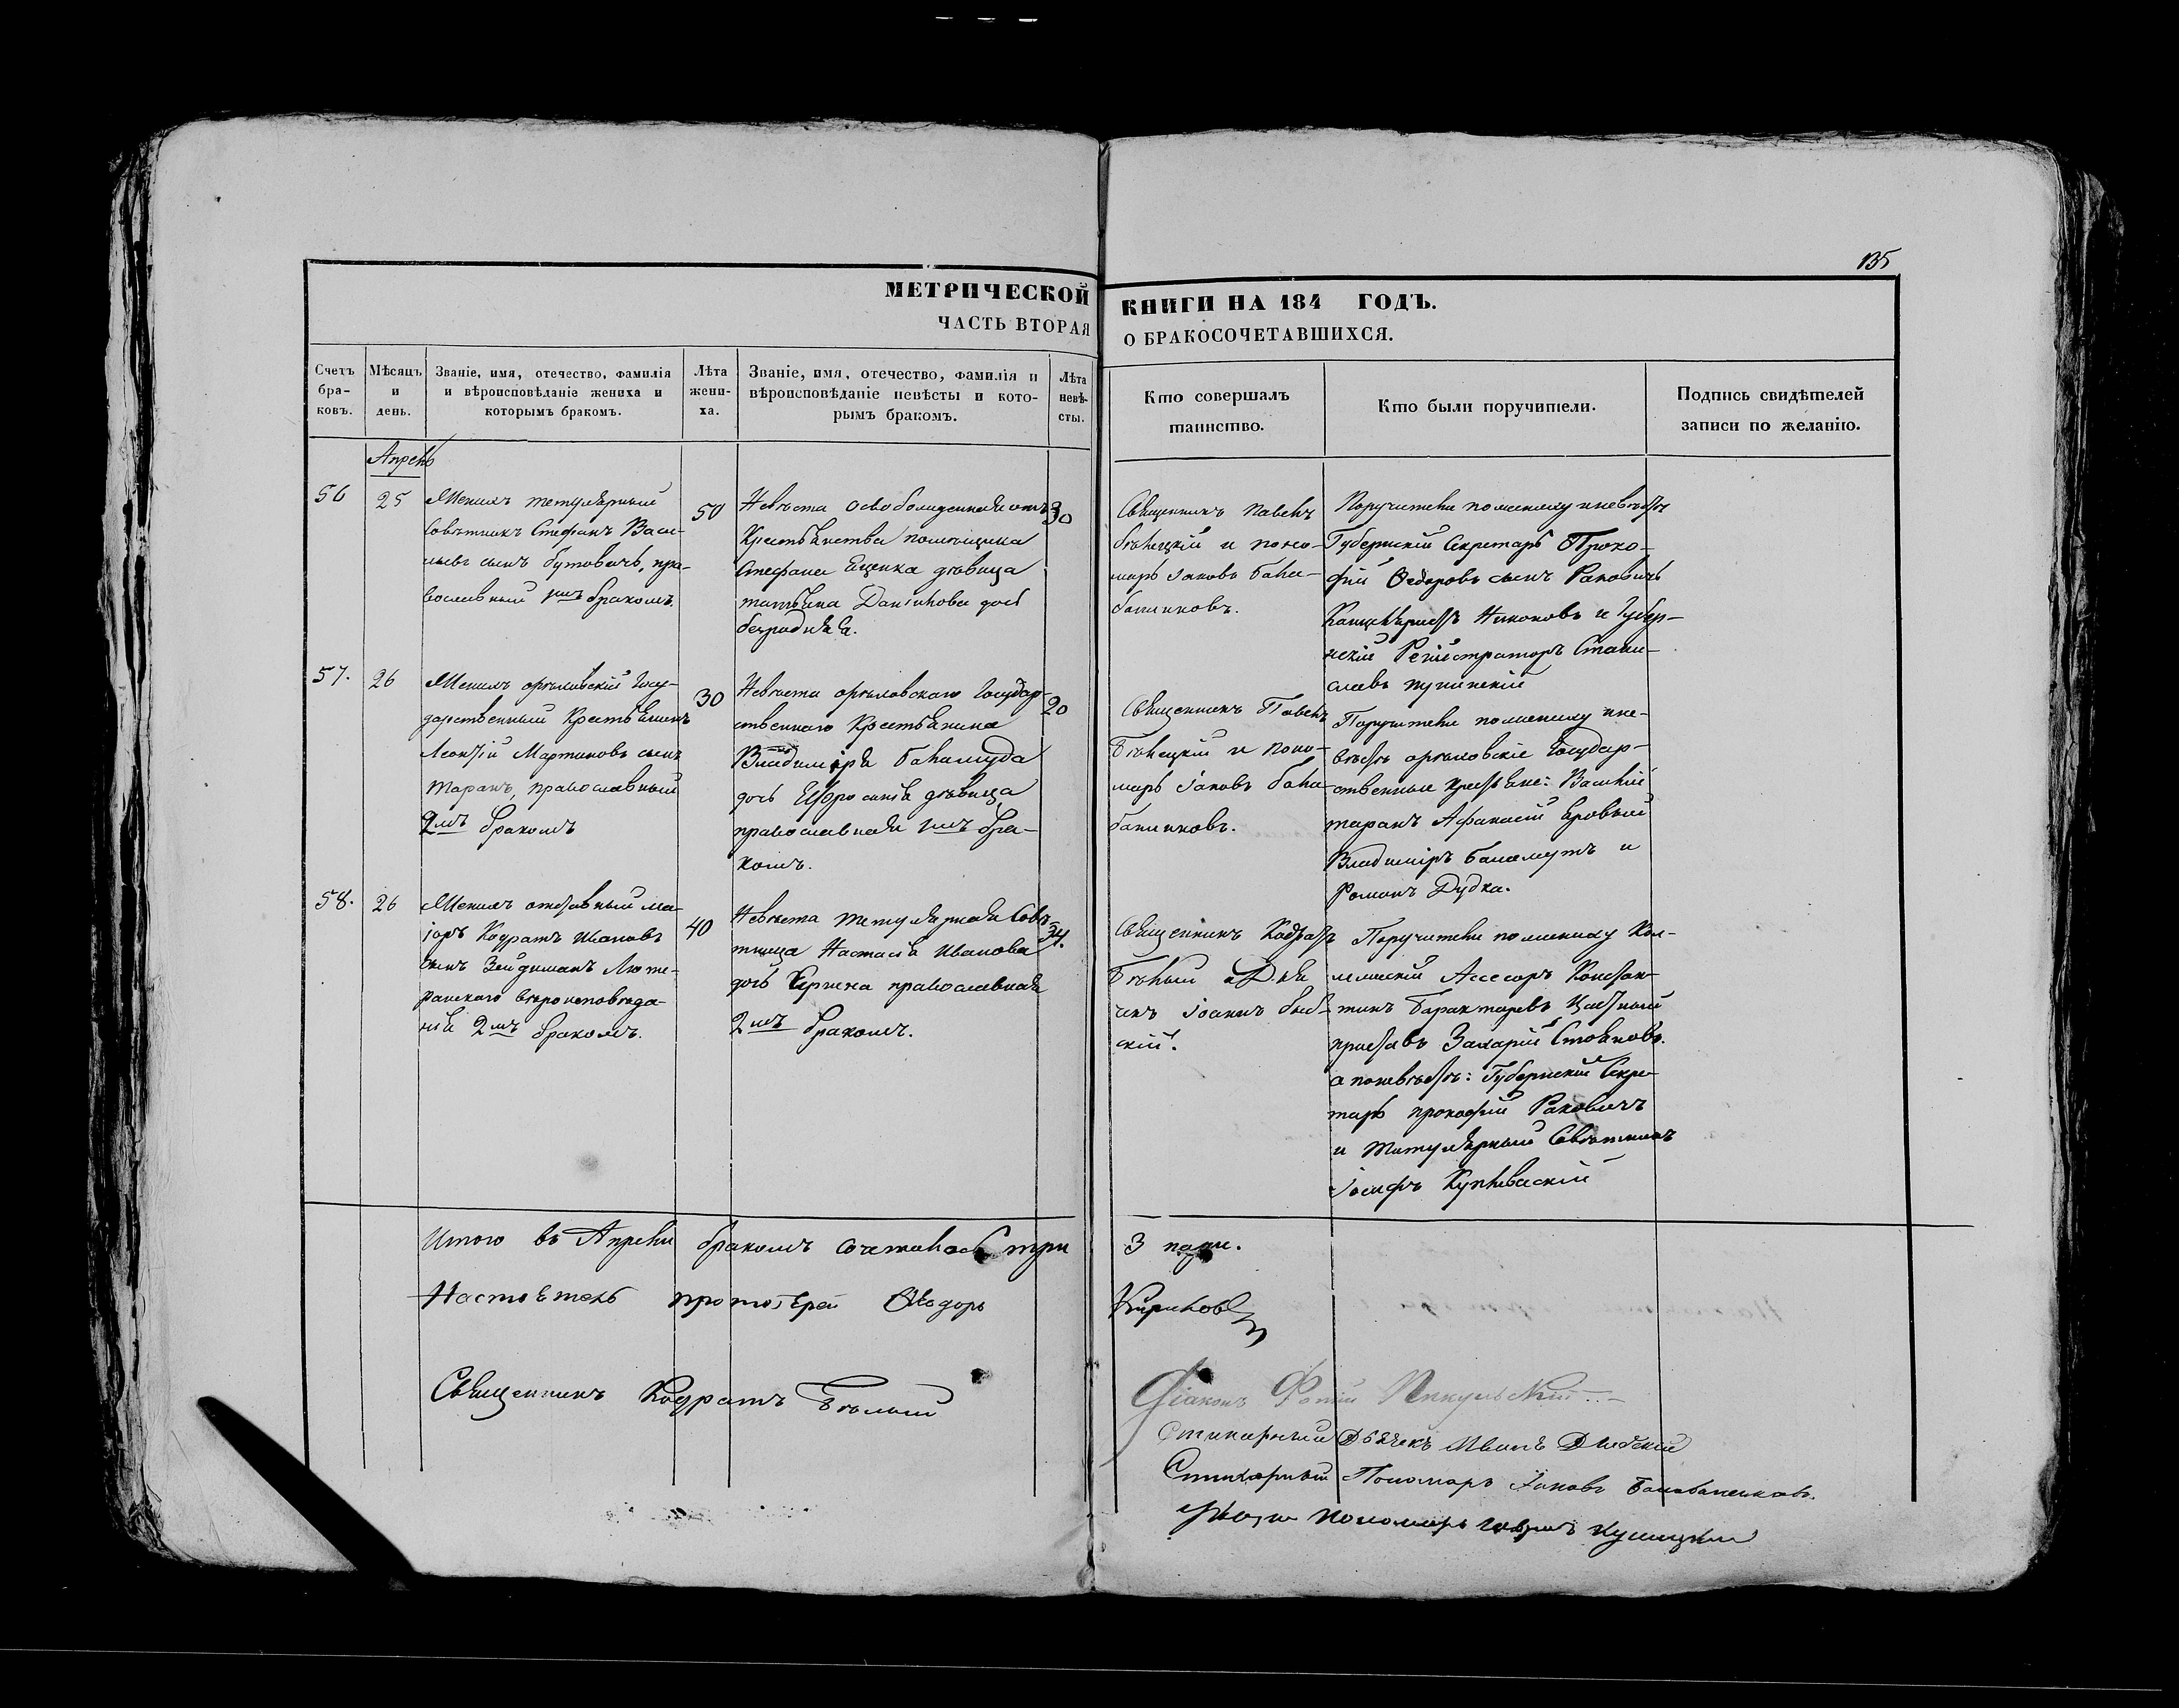 135
МЕТРИЧЕСКОЙ КНИГИ НА 184 ГОДЪ.
ЧАСТЬ ВТОРАЯ О БРАКОСОЧЕТАВШИХСЯ.
Счетъ браковъ.
Мѣсяцъ и день.
Званіе, имя, отечество, фамилія и вѣроисповѣданіе жениха и которымъ бракомъ.
Лѣта жениха.
Званіе, имя, отечество, фамилія и вѣроисповѣданіе невѣсты и которымъ бракомъ.
Лѣта невѣсты.
Кто совершалъ таинство.
Кто были поручители.
Подпись свидѣтелей записи по желанію.
Апрель
56
25
Женихъ титулярный
Совѣтникъ Стефанъ Васи-
льевъ сынъ Бутовичъ, пра-
вославный 1мъ бракомъ.
50
Невѣста освобожденная отъ
Крестьянства помѣщика
Стефана Ященка дѣвица
татьяна Данілова дочь
30
Священникъ Павелъ
Бѣлецкій и поно-
марь Іаковъ Бала-
банчиковъ.
Поручители по жениху и невѣстѣ
Губернскій Секретарь Проко-
фій Ѳедоровъ сынъ Раковичъ
Никоновъ и Губер-
нскій Регистраторъ Стани-
славъ
57.
26
Женихъ Госу-
дарственный Крестьянинъ
Леонтій Мартиновъ сынъ
Таранъ, православный
2мъ бракомъ
30
Невѣста Государ-
ственнаго Крестьянина
Владиміра Баламута
дочь Ефросинія дѣвица
православная 1мъ бра-
комъ.
20
Священникъ Павелъ
Бѣлецкій и поно-
марь Іаковъ Бала-
банчиковъ.
Поручители по жениху и не-
вѣстѣ Государ-
ственные крестьяне: Василій
таранъ Афанасій Яровый
Владиміръ Баламутъ и
Романъ Дудка.
58.
26
Женихъ отставный ма-
іоръ Кодратъ Ивановъ
сынъ Зейдиманъ Люте-
ранского вѣроисповѣда-
нія 2мъ бракомъ.
40
Невѣста титулярная Совѣ-
тница Настасія Иванова
дочь православная
2мъ бракомъ.
34.
Священникъ Кодратъ
Бѣлый и Дья-
чокъ Іоаннъ
скій.
Поручители по жениху Кол-
лежскій Ассесоръ Констан-
тинъ Частный
приставъ Захарій Стояновъ.
а по невѣстѣ: Губернскій Секре-
тарь прокофій Раковичъ
и титулярный Совѣтникъ
Іосифъ
Итого въ Апрели бракомъ сочеталось три 3 пари.
Настоятель протоіерей Ѳеодоръ Кириловъ
Священникъ Кодратъ Бѣлый
Діаконъ Фотій
Стихарный Дьячекъ Иванъ
Стихарный Пономарь Іаковъ Балабанчиковъ.
пономарь